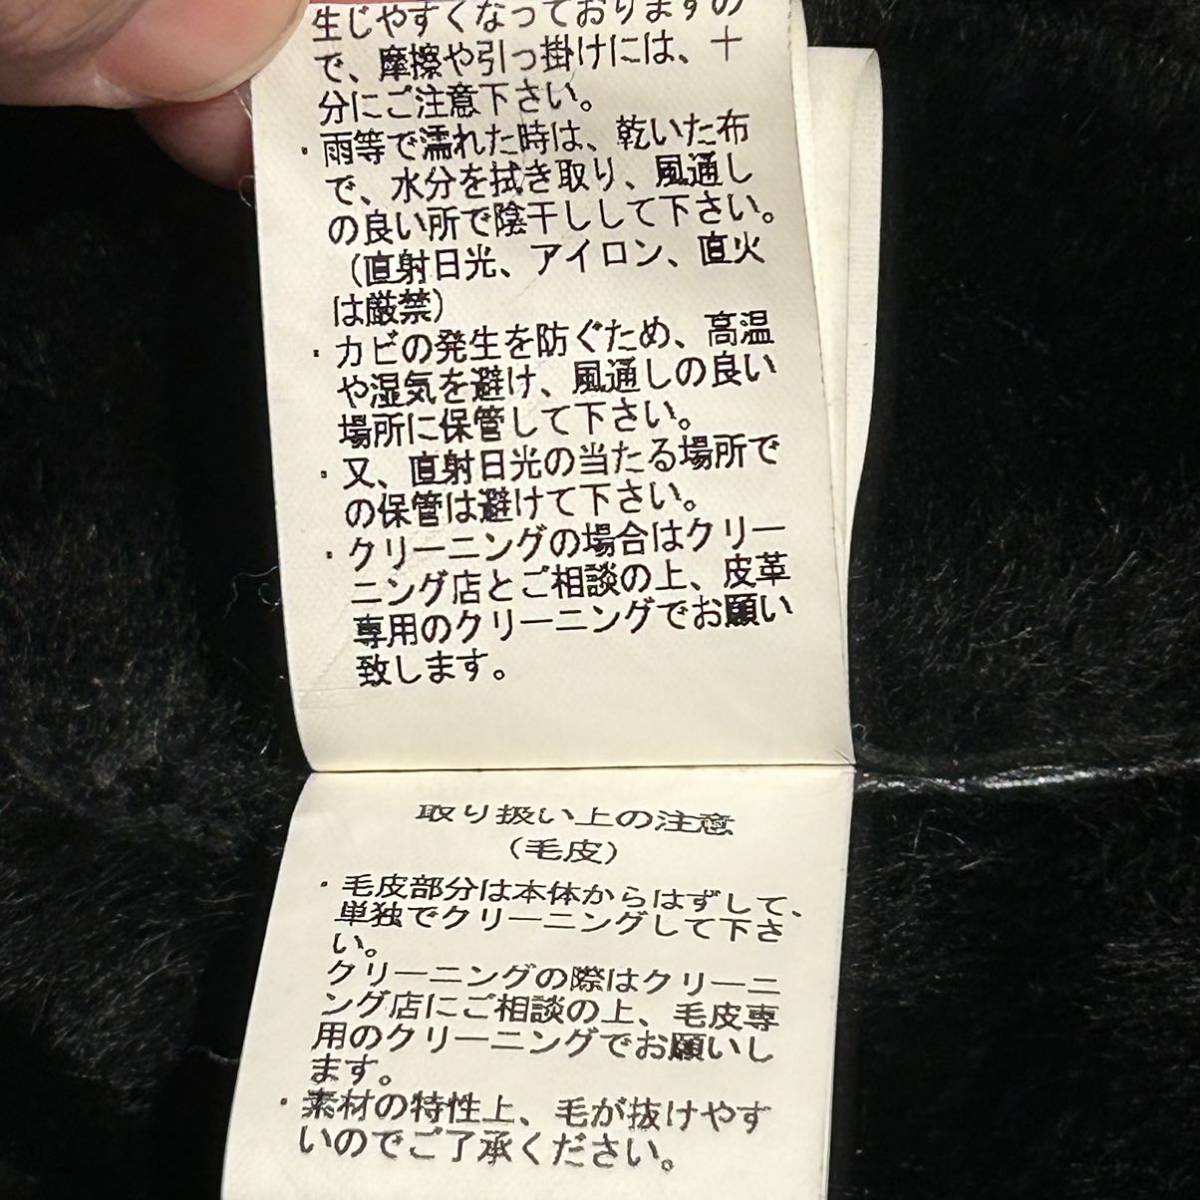 生じやすくなっておりますの
で、摩擦や引っ掛けには、十
分にご注意下さい。
・雨等で濡れた時は、乾いた布
で、水分を拭き取り、風通し
の良い所で陰干しして下さい。
（直射日光、アイロン、直火
は厳禁）
・カビの発生を防ぐため、高温
や湿気を避け、風通しの良い
場所に保管して下さい。
・又、直射日光の当たる場所で
の保管は避けて下さい。
・クリーニングの場合はクリー
ニング店とご相談の上、皮革
専用のクリーニングでお願い
致します。
取り扱い上の注意
（毛皮）
・毛皮部分は本体からはずして、
単独でクリーニングして下さ
い。
クリーニングの際はクリーニ
ング店にご相談の上、毛皮専
用のクリーニングでお願いし
ます。
・素材の特性上、毛が抜けやす
いのでご了承ください。